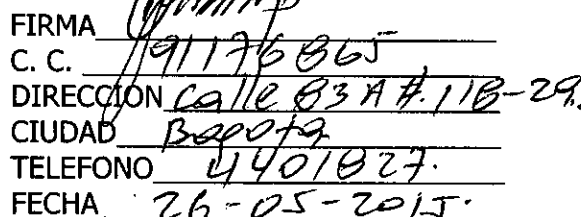 FIRMA
C. C. 91176865
DIRECCION Calle 83 A #. 118-29.
CIUDAD Bogota
TELEFONO 4401827.
FECHA 26-05-2015.